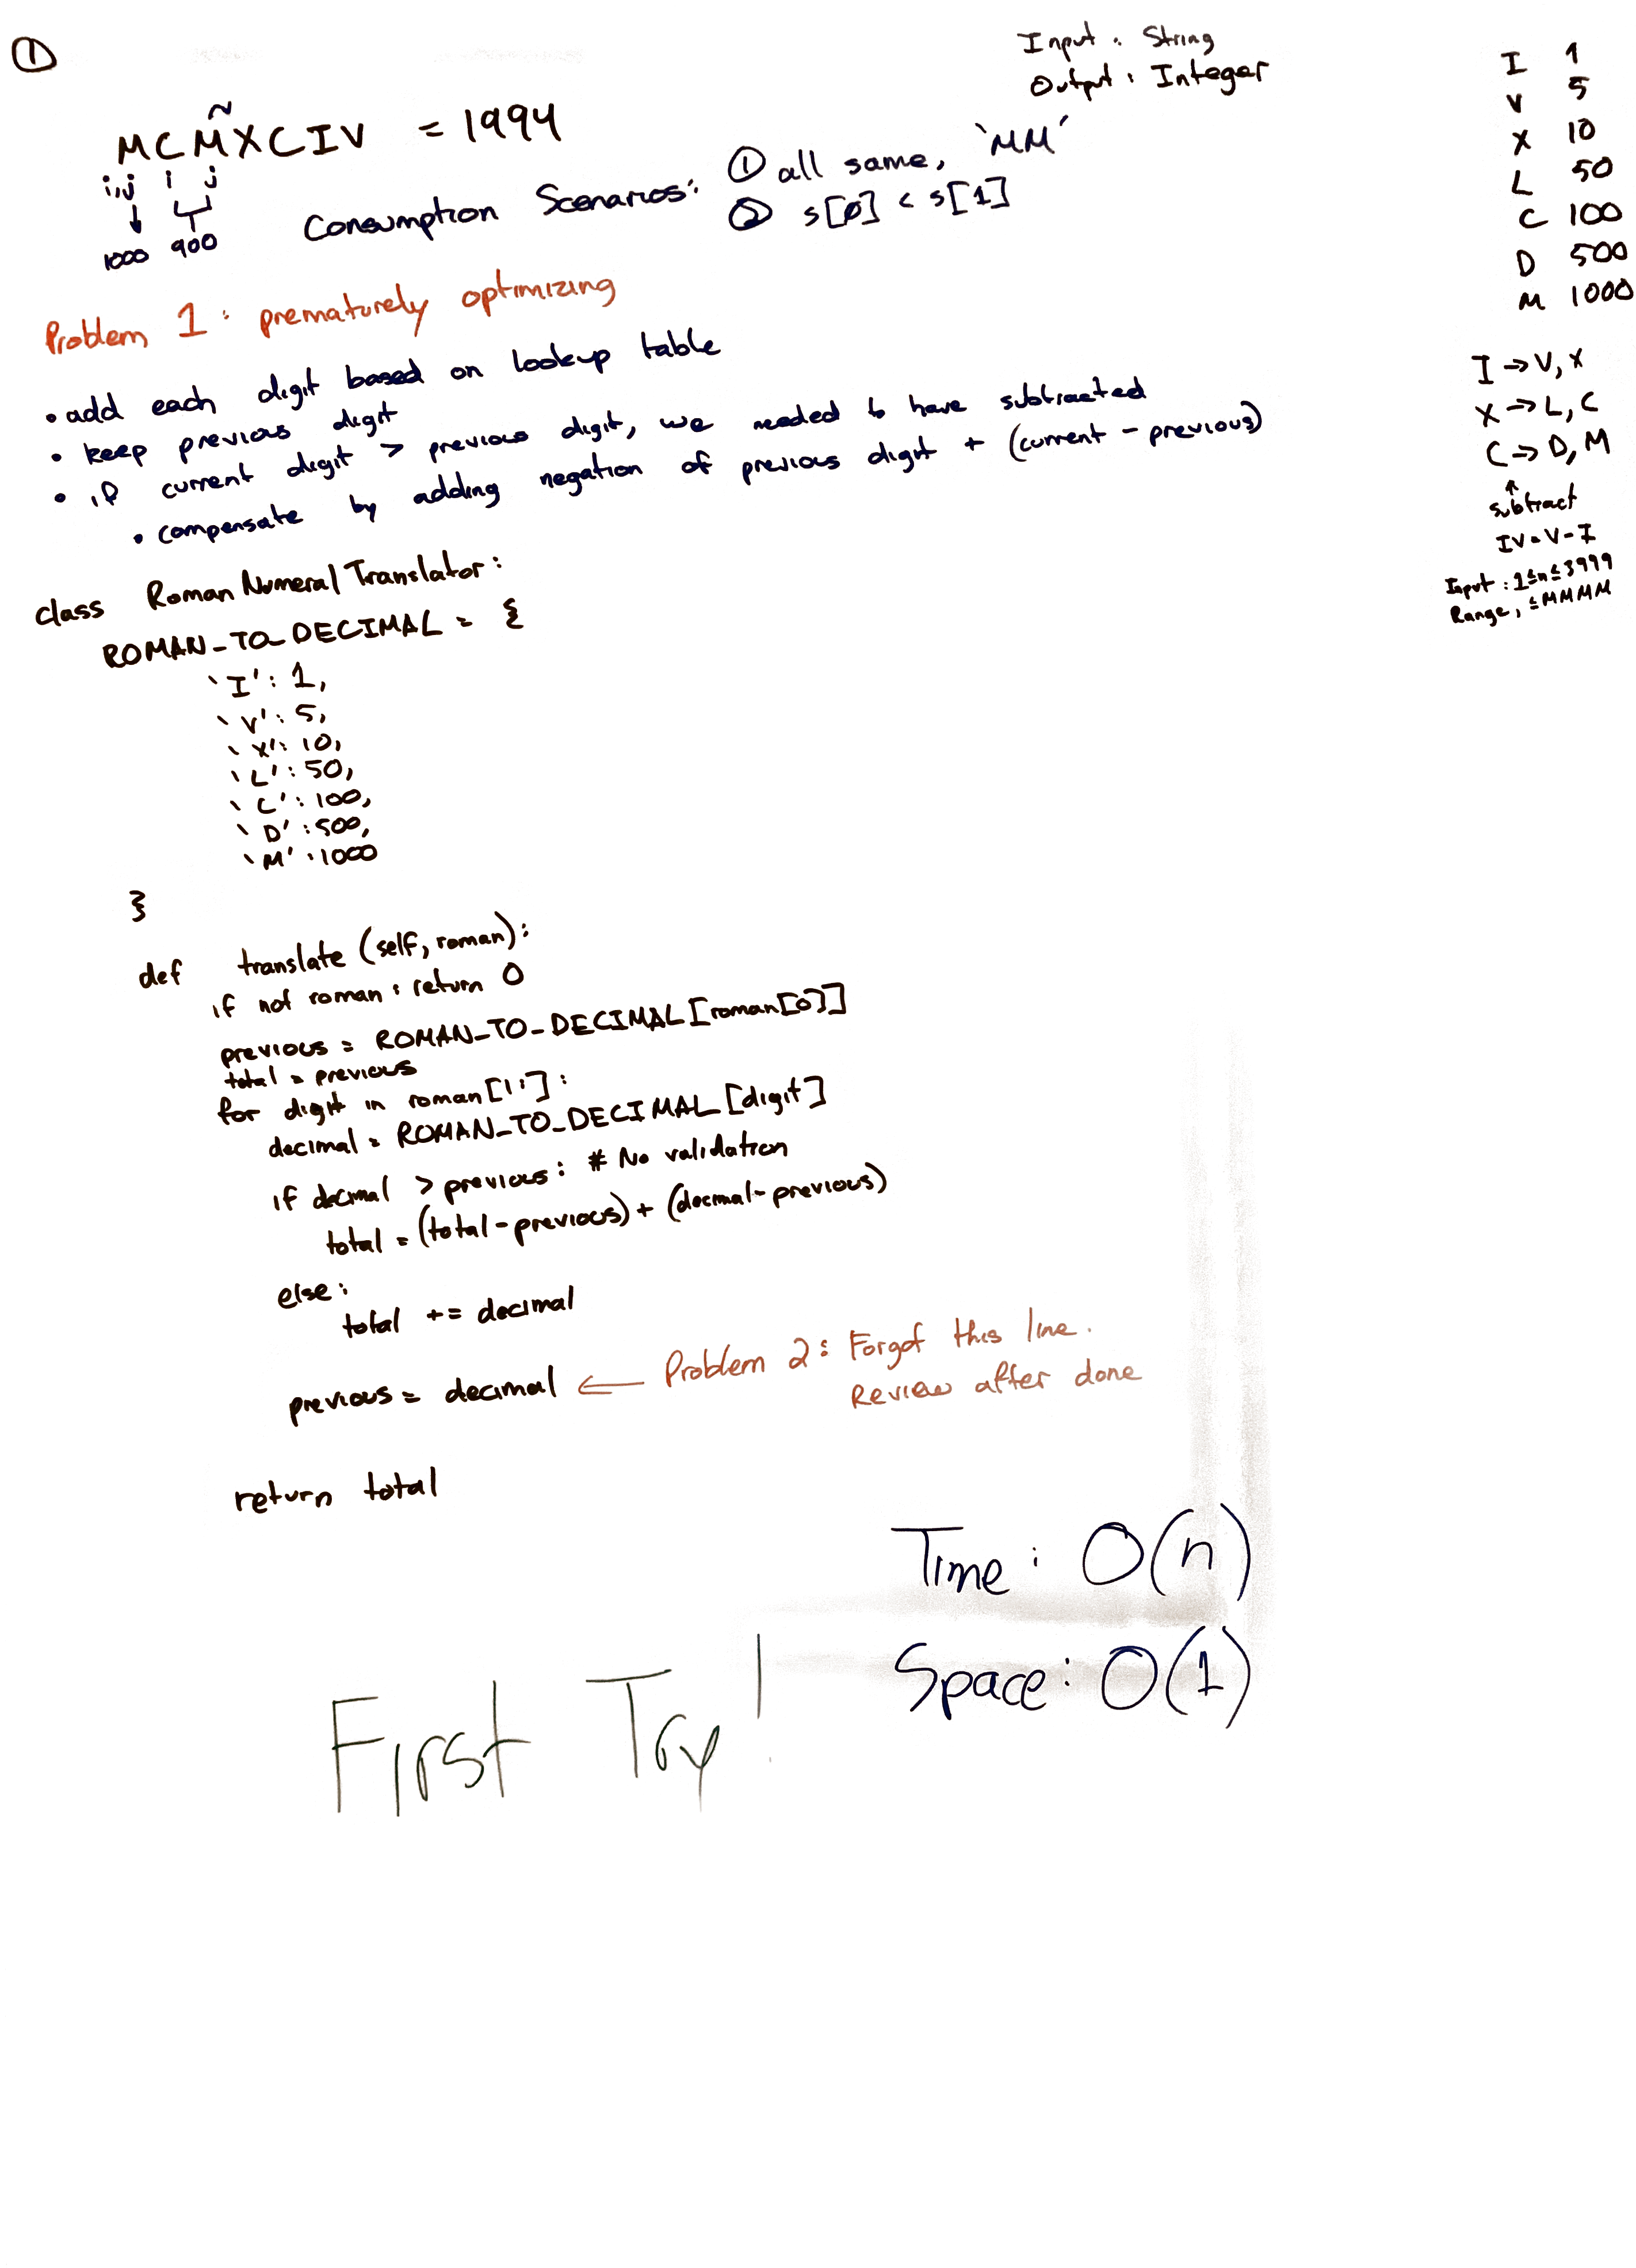 ①
Input : String
Output : Integer
MCMXCIV = 1994
~
i,j i j
1000 900
Consumption Scenarios: ① all same, 'MM'
② s[0] < s[1]
I 1
V 5
X 10
L 50
C 100
D 500
M 1000
I → V, X
X → L, C
C → D, M
↑
subtract
IV = V - I
Input : 1 ≤ n ≤ 3999
Range, ≤ MMMM
Problem 1 : prematurely optimizing
• add each digit based on lookup table
• keep previous digit
• if current digit > previous digit, we needed to have subtracted
• compensate by adding negation of previous digit + (current - previous)
class RomanNumeralTranslator:
ROMAN_TO_DECIMAL = {
'I': 1,
'V': 5,
'X': 10,
'L': 50,
'C': 100,
'D': 500,
'M': 1000
}
def translate (self, roman):
if not roman : return 0
previous = ROMAN_TO_DECIMAL[roman[0]]
total = previous
for digit in roman[1:]:
decimal = ROMAN_TO_DECIMAL[digit]
if decimal > previous: # No validation
total = (total - previous) + (decimal - previous)
else:
total += decimal
previous = decimal ← Problem 2 : Forgot this line.
Review after done
return total
Time : O(n)
Space : O(1)
First Try!